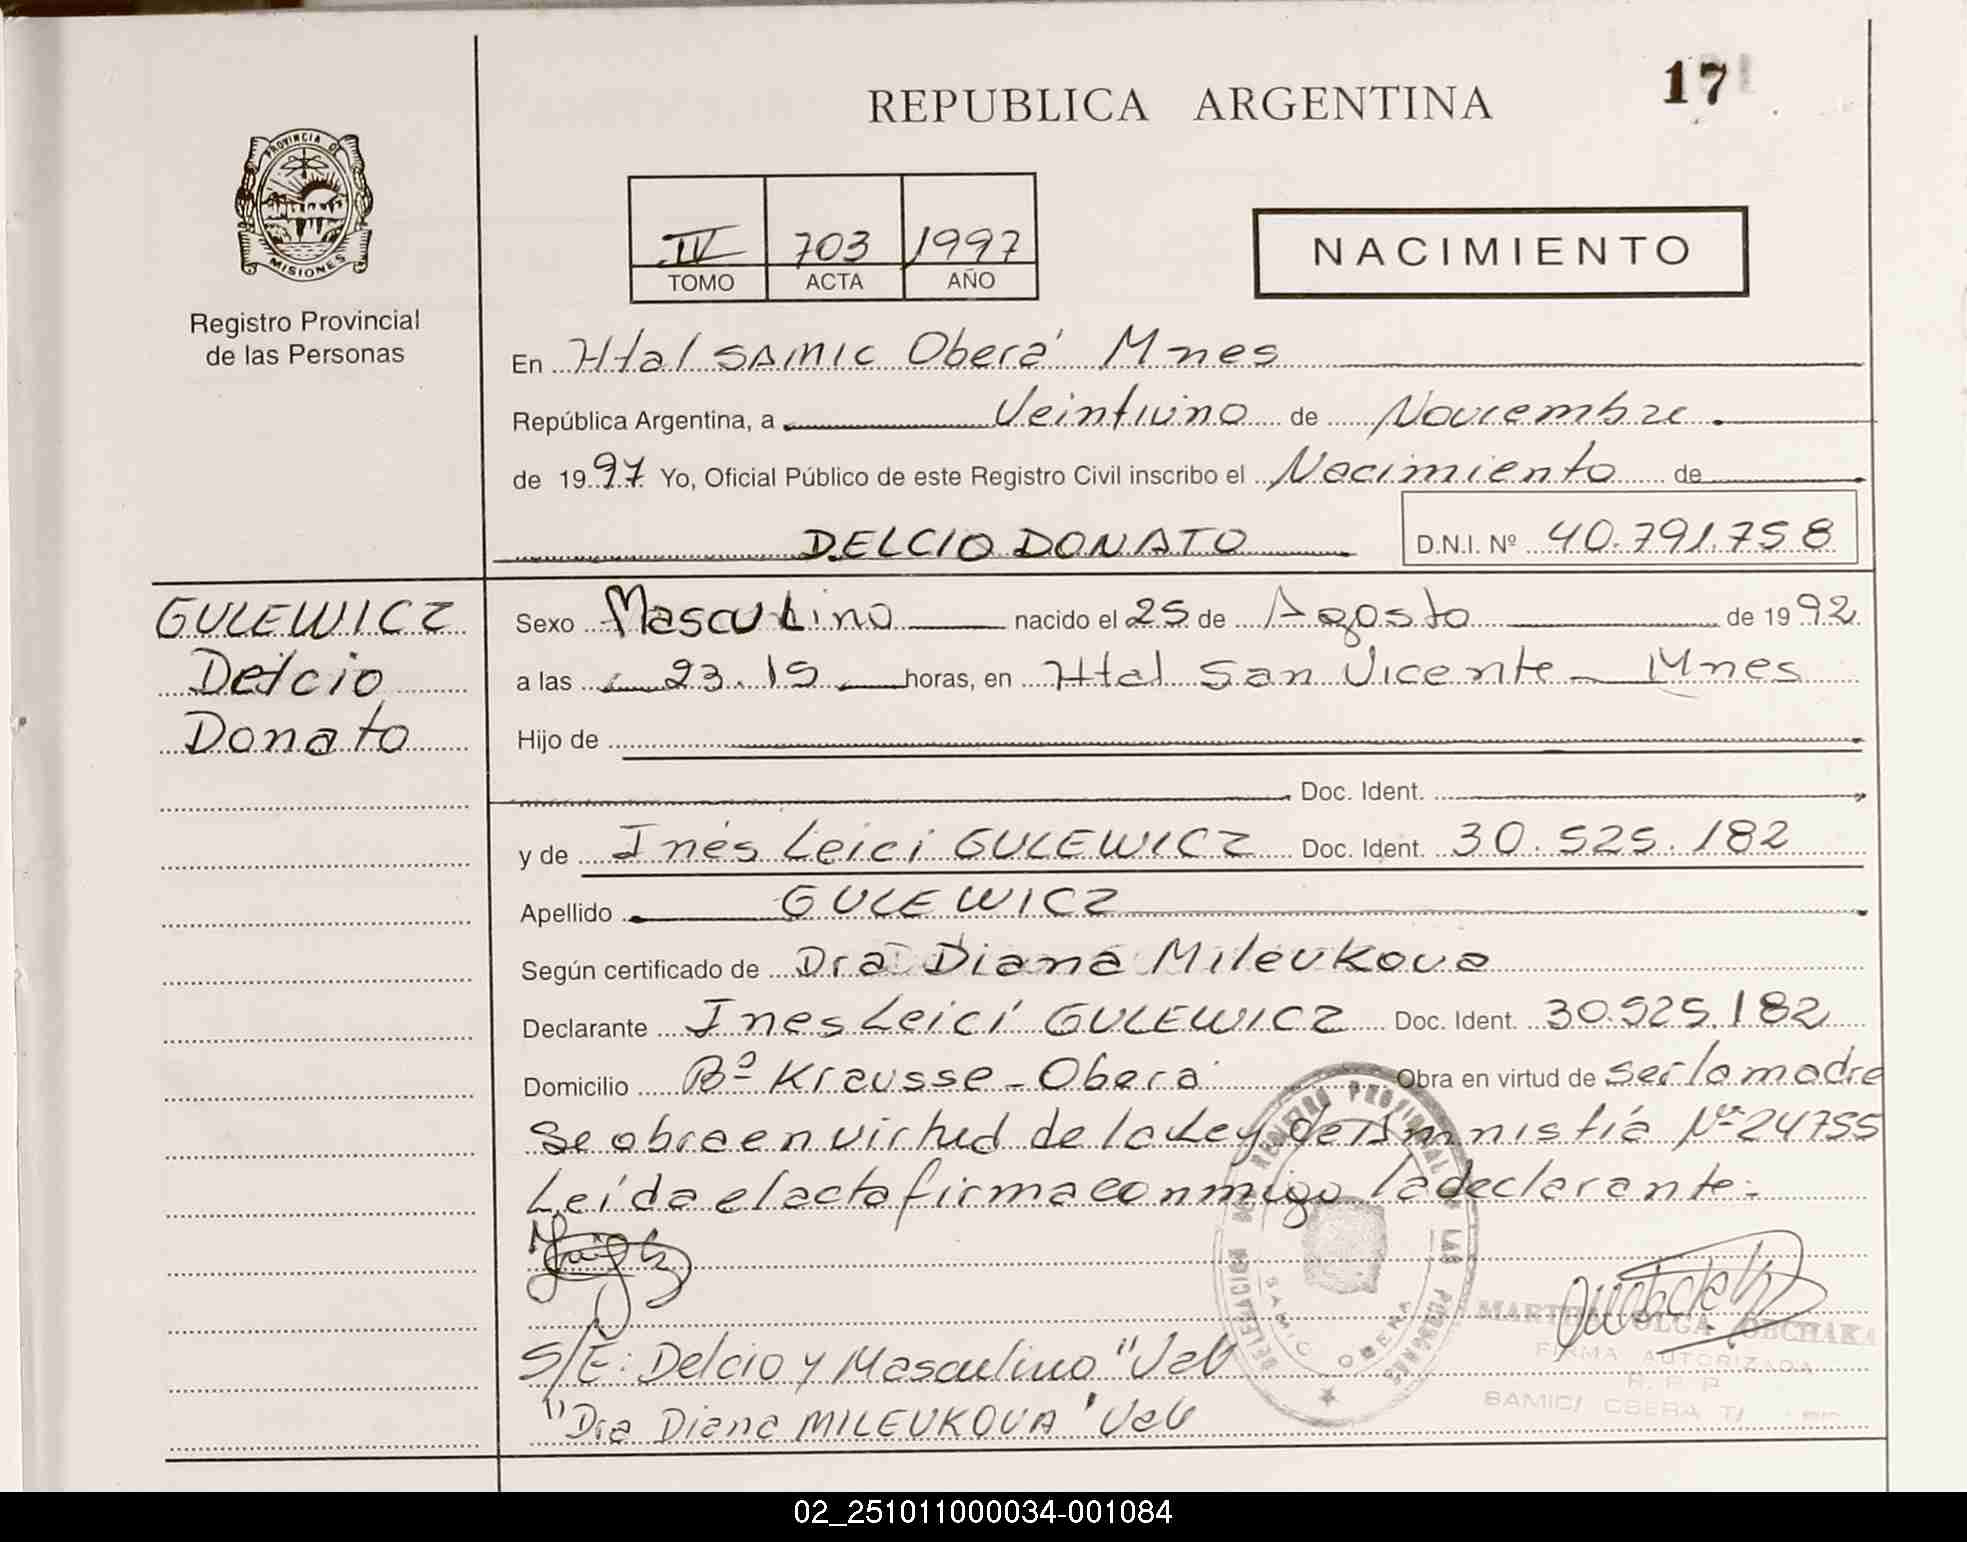 17
REPUBLICA ARGENTINA
PROVINCIA DE
MISIONES
Registro Provincial
de las Personas
IV 703 1997
TOMO ACTA AÑO
NACIMIENTO
En Htal SAMIC Oberá Mnes
República Argentina, a Veintiuno de Noviembre
de 1997 Yo, Oficial Público de este Registro Civil inscribo el Nacimiento de
DELCIO DONATO D.N.I. Nº 40.791.758
GULEWICZ
Delcio
Donato
Sexo Masculino nacido el 25 de Agosto de 1992
a las 23.15 horas, en Htal San Vicente - Mnes
Hijo de
Doc. Ident.
y de Inés Leici GULEWICZ Doc. Ident. 30.525.182
Apellido GULEWICZ
Según certificado de Dra Diana Mileukova
Declarante Ines Leicí GULEWICZ Doc. Ident. 30.525.182
Domicilio Bº Krausse - Obera Obra en virtud de ser la madre
Se obra en virtud de la Ley de Amnistía Nº 24755
Leída el acta firma conmigo la declarante.
S/E: Delcio y Masculino "Vale
"Dra Diana MILEUKOVA" Vale
DELEGACION DEL REGISTRO PROVINCIAL DE LAS PERSONAS
SAMIC OBERA
OLGA
FIRMA AUTORIZADA
R. P. P.
SAMIC/ OBERA
02_251011000034-001084